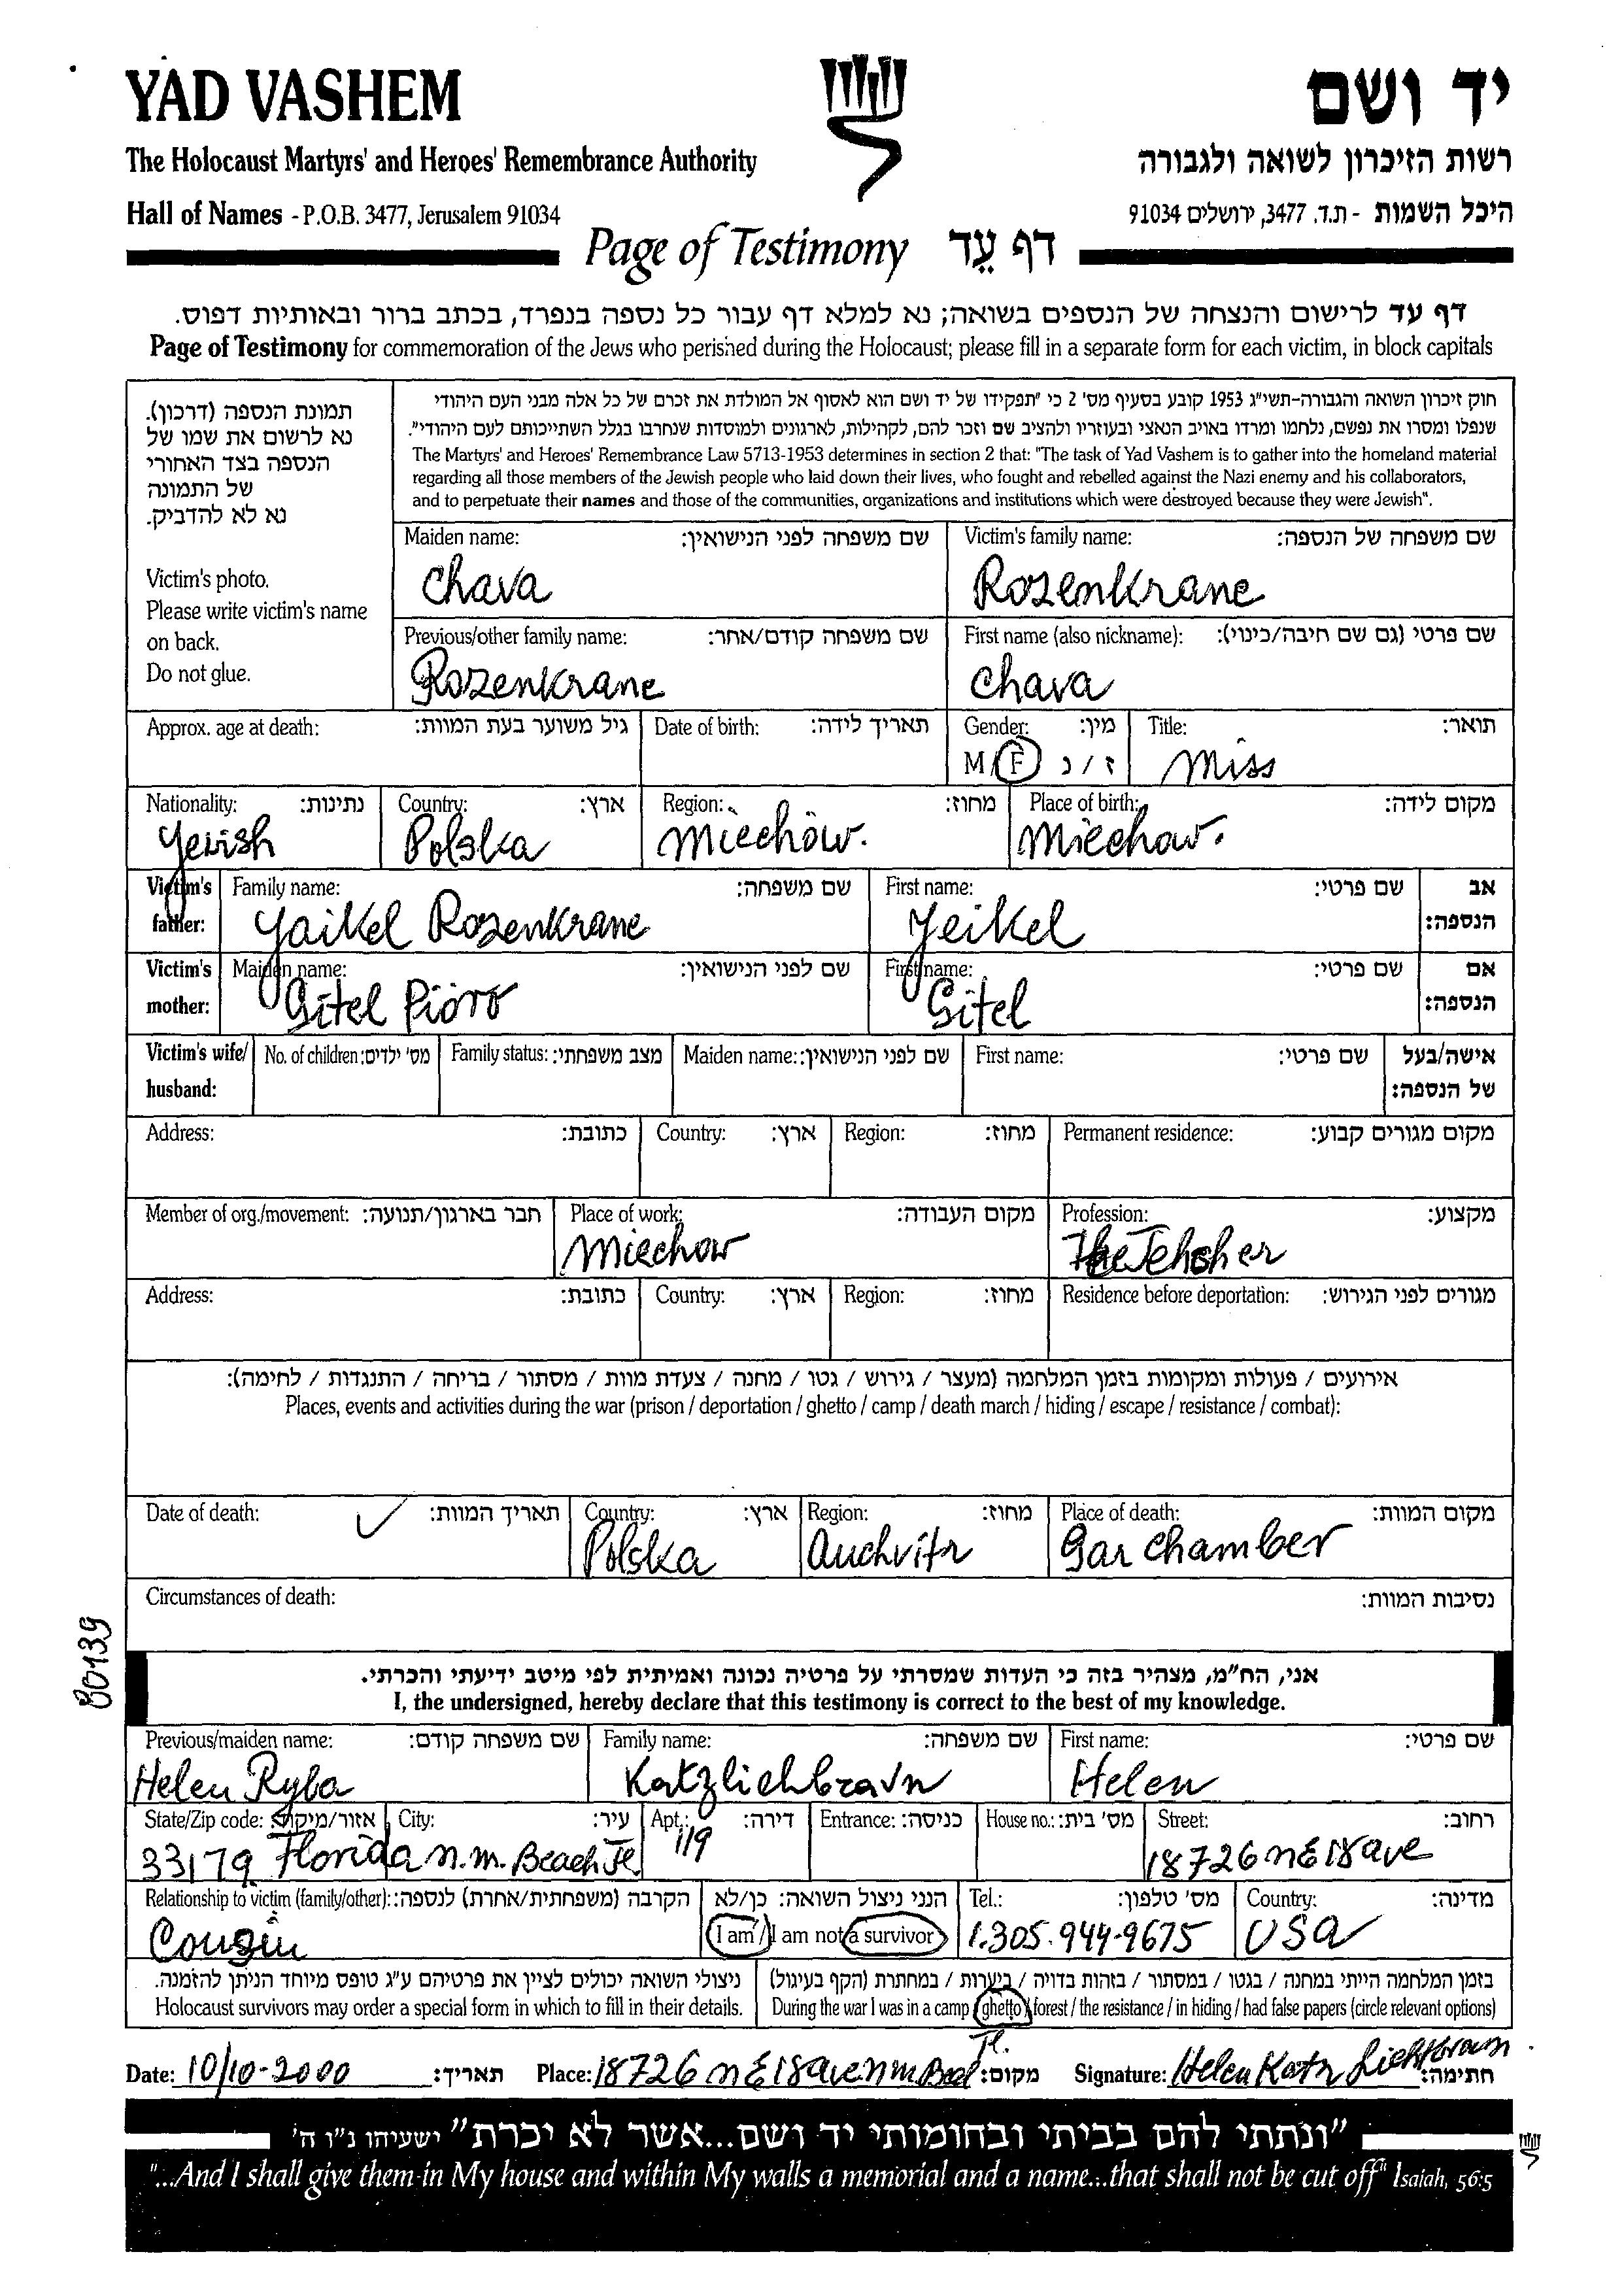 YAD VASHEM
יד ושם
The Holocaust Martyrs' and Heroes' Remembrance Authority
רשות הזיכרון לשואה ולגבורה
Hall of Names - P.O.B. 3477, Jerusalem 91034
היכל השמות - ת.ד. 3477, ירושלים 91034
Page of Testimony דף עֵד
דף עד לרישום והנצחה של הנספים בשואה; נא למלא דף עבור כל נספה בנפרד, בכתב ברור ובאותיות דפוס.
Page of Testimony for commemoration of the Jews who perished during the Holocaust; please fill in a separate form for each victim, in block capitals
תמונת הנספה (דרכון).
נא לרשום את שמו של
הנספה בצד האחורי
של התמונה
נא לא להדביק.
Victim's photo.
Please write victim's name
on back.
Do not glue.
חוק זיכרון השואה והגבורה-תשי"ג 1953 קובע בסעיף מס' 2 כי "תפקידו של יד ושם הוא לאסוף אל המולדת את זכרם של כל אלה מבני העם היהודי
שנפלו ומסרו את נפשם, נלחמו ומרדו באויב הנאצי ובעוזריו ולהציב שם וזכר להם, לקהילות, לארגונים ולמוסדות שנחרבו בגלל השתייכותם לעם היהודי".
The Martyrs' and Heroes' Remembrance Law 5713-1953 determines in section 2 that: "The task of Yad Vashem is to gather into the homeland material
regarding all those members of the Jewish people who laid down their lives, who fought and rebelled against the Nazi enemy and his collaborators,
and to perpetuate their names and those of the communities, organizations and institutions which were destroyed because they were Jewish".
Maiden name: שם משפחה לפני הנישואין: Victim's family name: שם משפחה של הנספה:
Chava Rozenkrane
Previous/other family name: שם משפחה קודם/אחר: First name (also nickname): שם פרטי (גם שם חיבה/כינוי):
Rozenkrane Chava
Approx. age at death: גיל משוער בעת המוות: Date of birth: תאריך לידה: Gender: מין: Title: תואר:
M/F ז / נ Miss
Nationality: נתינות: Country: ארץ: Region: מחוז: Place of birth: מקום לידה:
Yewish Polska Miechów. Miechow.
Victim's father: Family name: שם משפחה: First name: שם פרטי: אב הנספה:
Yaikel Rozenkrane Yeikel
Victim's mother: Maiden name: שם לפני הנישואין: First name: שם פרטי: אם הנספה:
Gitel Pióro Gitel
Victim's wife/ husband: No. of children: מס' ילדים: Family status: מצב משפחתי: Maiden name: שם לפני הנישואין: First name: שם פרטי: אישה/בעל של הנספה:
Address: כתובת: Country: ארץ: Region: מחוז: Permanent residence: מקום מגורים קבוע:
Member of org./movement: חבר בארגון/תנועה: Place of work: מקום העבודה: Profession: מקצוע:
Miechow
Address: כתובת: Country: ארץ: Region: מחוז: Residence before deportation: מגורים לפני הגירוש:
אירועים / פעולות ומקומות בזמן המלחמה (מעצר / גירוש / גטו / מחנה / צעדת מוות / מסתור / בריחה / התנגדות / לחימה):
Places, events and activities during the war (prison / deportation / ghetto / camp / death march / hiding / escape / resistance / combat):
Date of death: תאריך המוות: Country: ארץ: Region: מחוז: Place of death: מקום המוות:
Polska Auchvitz Gas chamber
Circumstances of death: נסיבות המוות:
80139
אני, הח"מ, מצהיר בזה כי העדות שמסרתי על פרטיה נכונה ואמיתית לפי מיטב ידיעתי והכרתי.
I, the undersigned, hereby declare that this testimony is correct to the best of my knowledge.
Previous/maiden name: שם משפחה קודם: Family name: שם משפחה: First name: שם פרטי:
Helen Ryba Katzlichbravn Helen
State/Zip code: אזור/מיקוד City: עיר: Apt.: דירה: Entrance: כניסה: House no.: מס' בית: Street: רחוב:
33179 Florida n.m. Beach Fl. 119 18726 NE 18 ave
Relationship to victim (family/other): הקרבה (משפחתית/אחרת) לנספה: הנני ניצול השואה: כן/לא Tel.: מס' טלפון: Country: מדינה:
Cousin I am / I am not a survivor 1.305.944-9675 USA
ניצולי השואה יכולים לציין את פרטיהם ע"ג טופס מיוחד הניתן להזמנה. בזמן המלחמה הייתי במחנה / בגטו / במסתור / בזהות בדויה / ביערות / במחתרת (הקף בעיגול)
Holocaust survivors may order a special form in which to fill in their details. During the war I was in a camp / ghetto / forest / the resistance / in hiding / had false papers (circle relevant options)
Date: 10/10-2000 תאריך: Place: 18726 NE 18 ave n m Fl. מקום: Signature: Helen Katz Lichtbraun חתימה:
"ונתתי להם בביתי ובחומותי יד ושם...אשר לא יכרת" ישעיהו נ"ו ה'
"...And I shall give them in My house and within My walls a memorial and a name...that shall not be cut off" Isaiah, 56:5